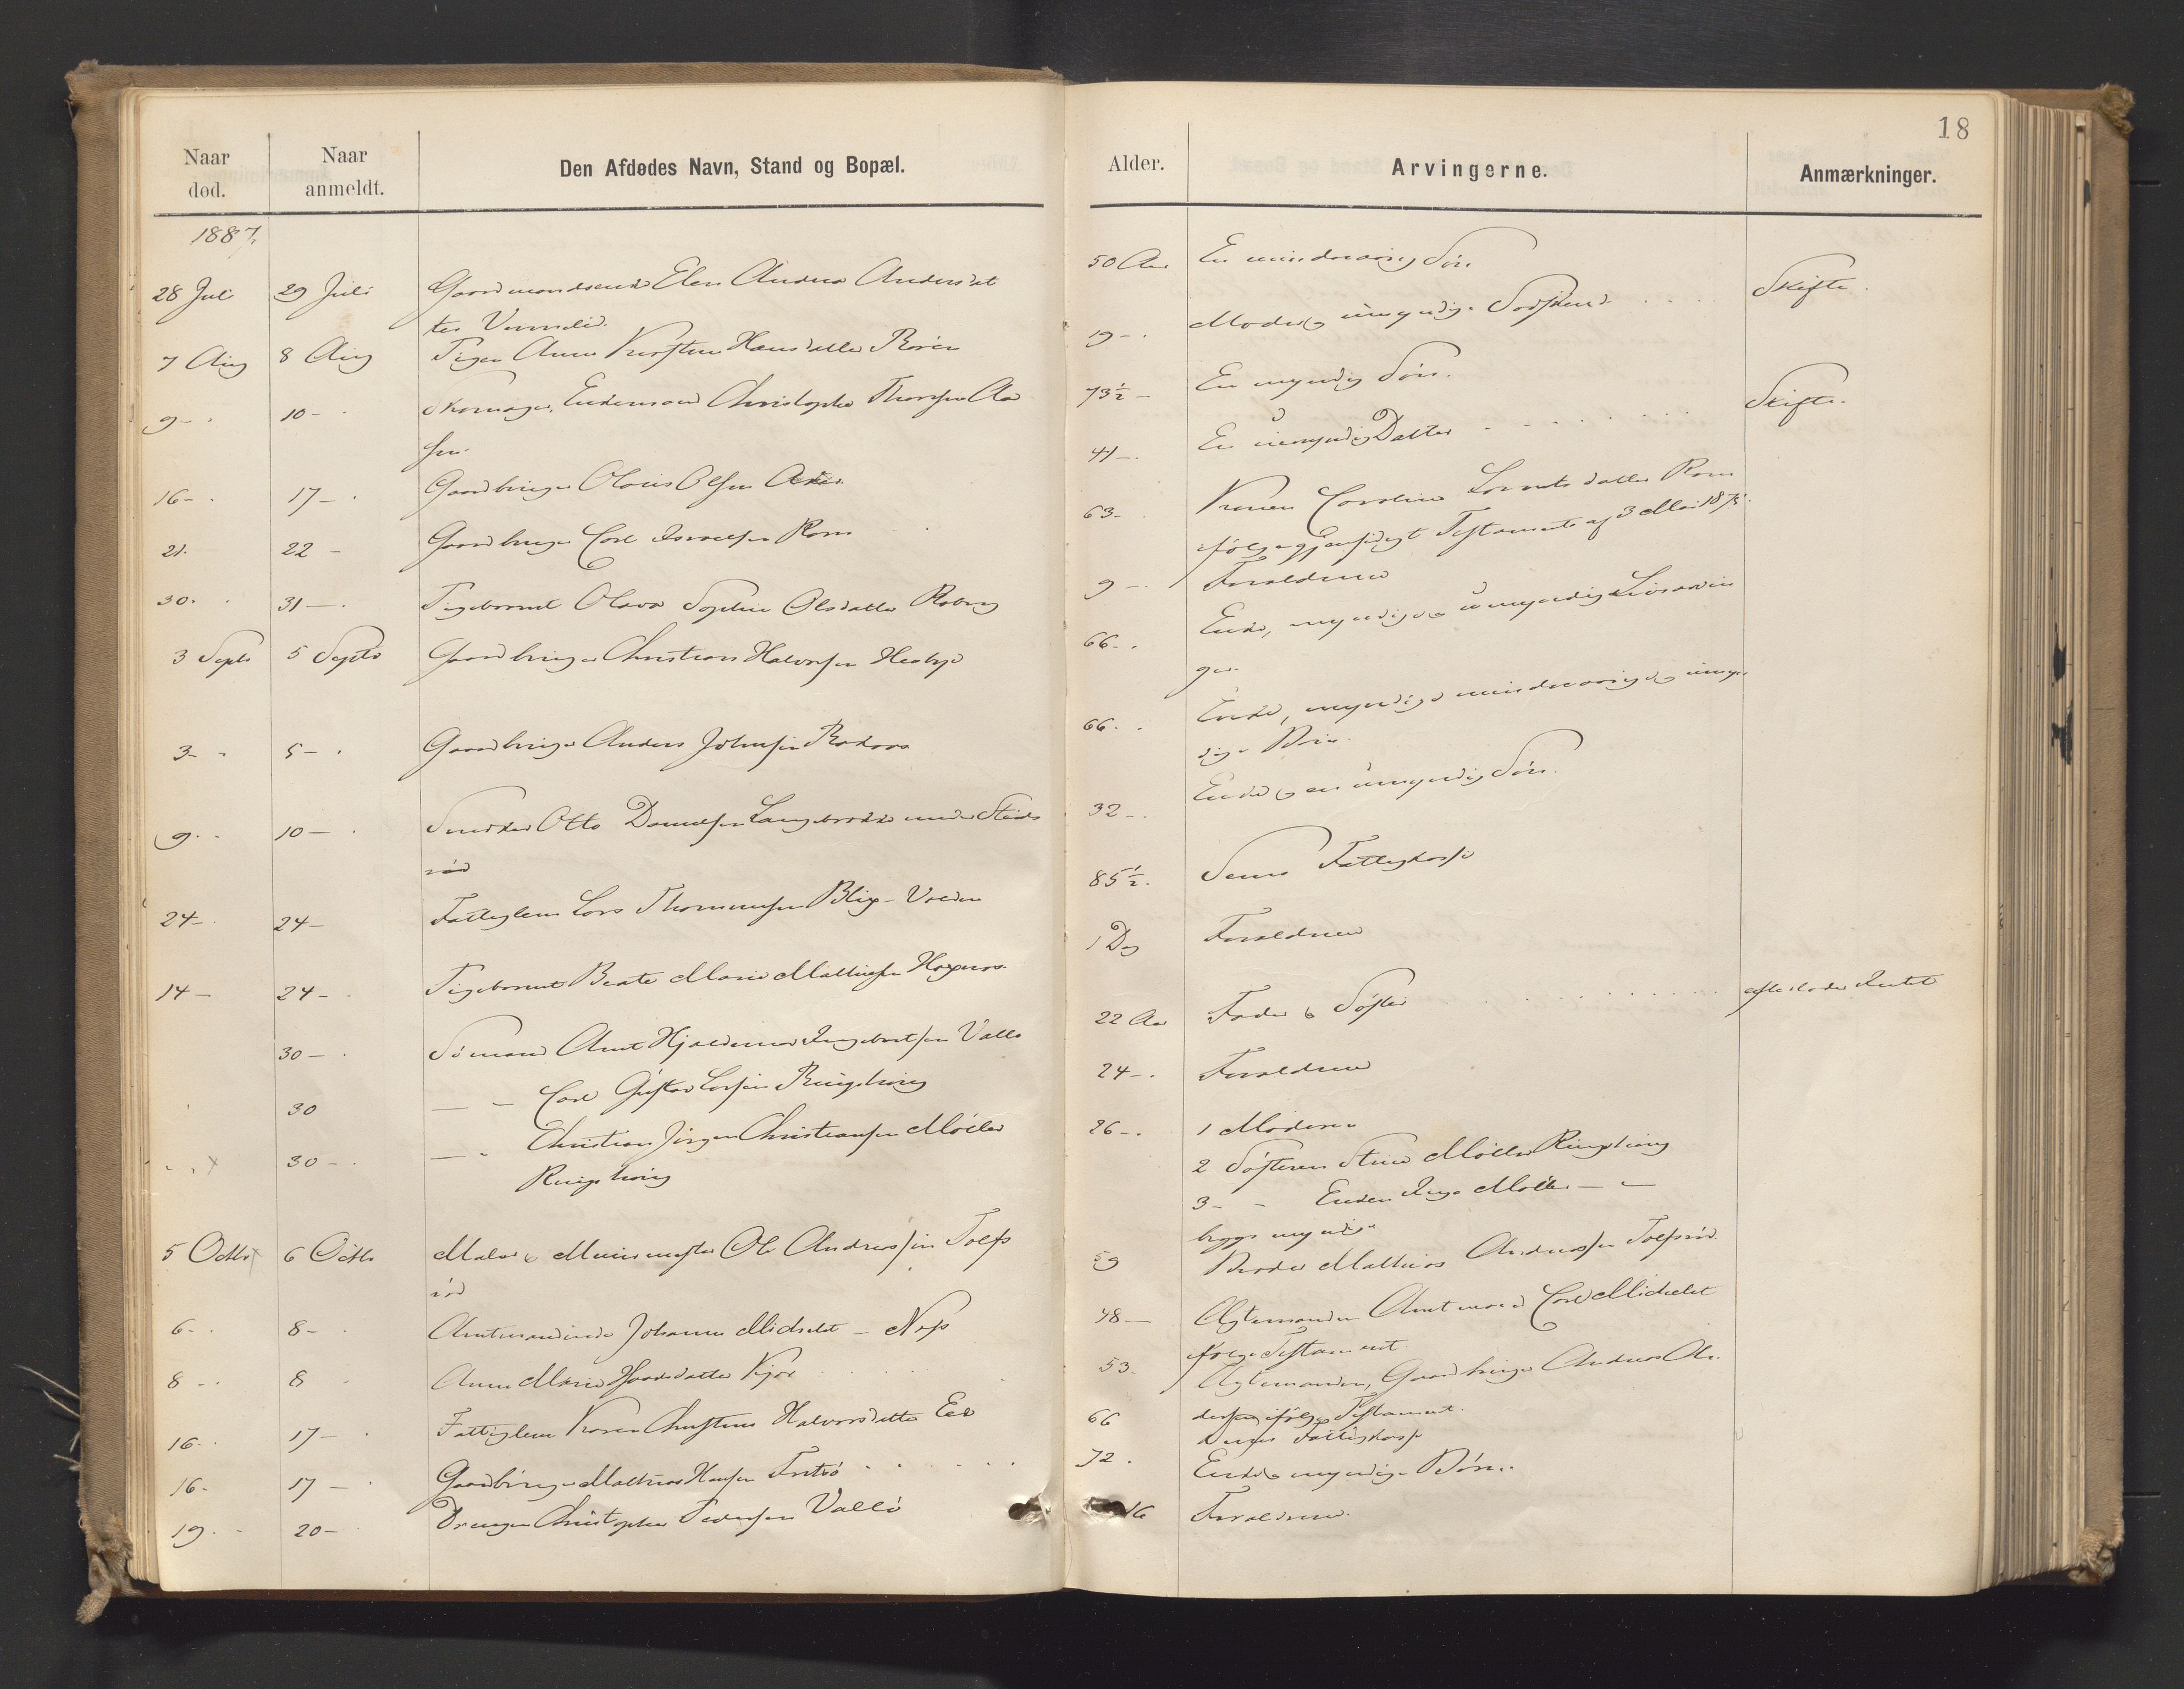 18
Naar
død.
Naar
anmeldt.
Den Afdødes Navn, Stand og Bopæl.
Alder.
Arvingerne.
Anmærkninger.
1887.
28 Juli 29 Juli Gaardmandsenke Elen Andrea Andersdat
ter 50 Aar En mindreaarig Søn Skifte.
7 Aug 8 Aug Pigen Anne Kirstine Hansdatter 19 - Moder og umyndige Sødskend
9 - 10 - Skomager, Enkemand Christopher Thorsen Aa 73½ - En myndig Søn.
sen.
16 - 17 - Gaardbruger Olaus Olsen Aker 41 - En umyndig Datter Skifte.
21. 22 - Gaardbruger Carl Israelsen Rom 63 - Konen Caroline Lorentsdatter Rom
ifølge gjensidigt Testamente af 3 Mai 187
30. 31 - Pigebarnet Olava Sophie Olsdatter Roberg 9 - Forældrene
3 Septb 5 Septb Gaardbruger Christian Halvorsen Heabye 66 - Enke, myndige og umyndige Livsarvin
ger.
3 - 5 - Gaardbruger Anders Johnsen 66 - Enke, myndige mindreaarige og umyn
dige Børn.
9 - 10 - Snedker Otto Danielsen under Steds 32 - Enke og en umyndig Søn.
rød
24 - 24 - Fattiglem Lars Thommesen Blix - Volden 85½. Sems Fattigkasse
14 - 24 - Pigebarnet Beate Marie Mathiesen 1 Dag Forældrene
30 - Sømand Anut Hjaldemar Ingebretsen Vallø 22 Aar Fader & Søster efterlader Intet
30 - - Carl Gustav Larsen Ringshaug 24 - Forældrene
30 - - - Christian Jørgen Christiansen Møller 26 - 1 Moderen
Ringshaug
2 Søsteren Stine Møller Ringshaug
3 - - Enken Inga Møller - -
begge myndige
5 Octbr 6 Octbr Maler & Muurmester Ole Andreassen Tolfs 59 Broder Mathias Andreassen Tolfsrød
rød
6 - 8 - Amtmandinde Johanne Michelet - Næs 48 - Ægtemanden Amtmand Carl Michelet
ifølge Testament
8 - 8 Anne Marie Hansdatter Kjær 53 - Ægtemanden, Gaardbruger Andreas An
dersen ifølge Testament.
16 - 17 - Fattiglem Karen Christine Halvorsdatter Eek 66 Fattigkasse
16 - 17 - Gaardbruger Mathias Hansen 72. Enke & myndige Børn.
19 - 20 - Drengen Christopher Pedersen Vallø 16 Forældrene.